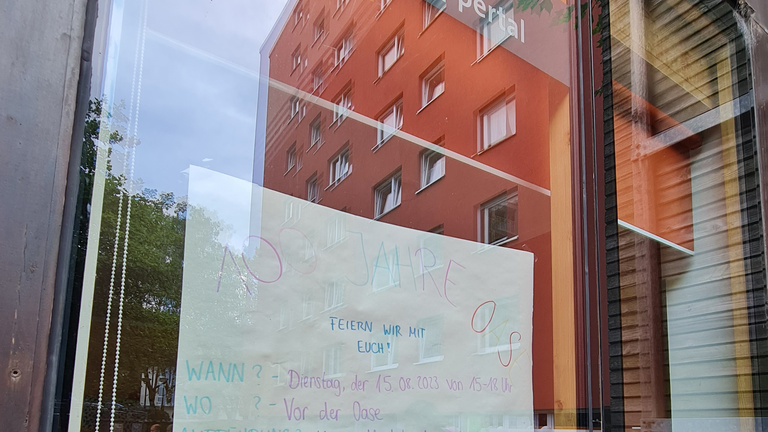 pertal
100 JAHRE
OS
FEIERN WIR MIT
EUCH!
WANN? - Dienstag, der 15.08.2023 von 15-18 Uhr
WO ? - Vor der Oase